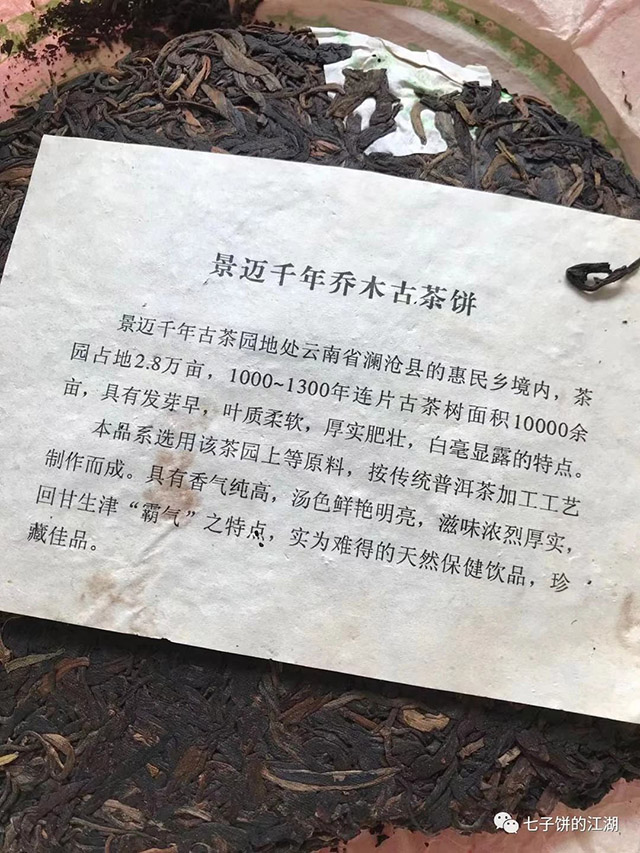 景迈千年乔木古茶饼
景迈千年古茶园地处云南省澜沧县的惠民乡境内，茶
园占地2.8万亩，1000~1300年连片古茶树面积10000余
亩，具有发芽早，叶质柔软，厚实肥壮，白毫显露的特点。
本品系选用该茶园上等原料，按传统普洱茶加工工艺
制作而成。具有香气纯高，汤色鲜艳明亮，滋味浓烈厚实，
回甘生津“霸气”之特点，实为难得的天然保健饮品，珍
藏佳品。
七子饼的江湖